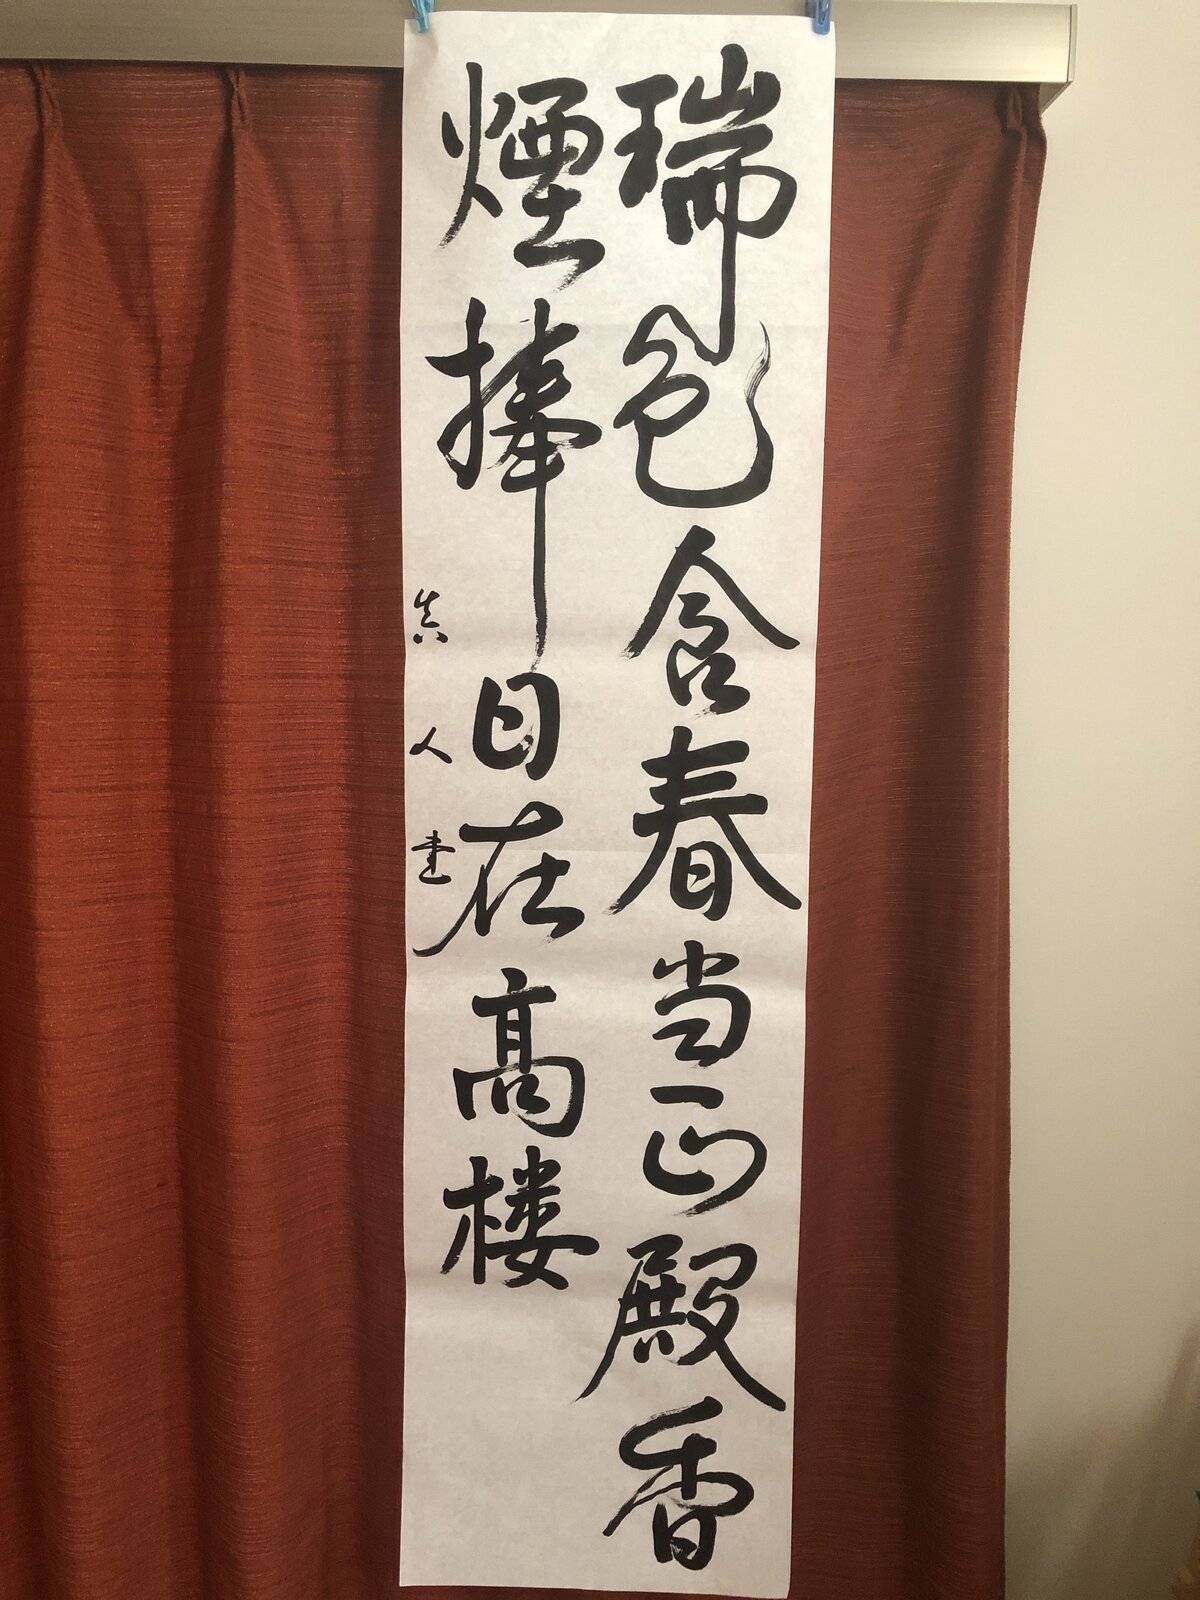 瑞色含春当正殿香
煙捧日在高楼
真人書